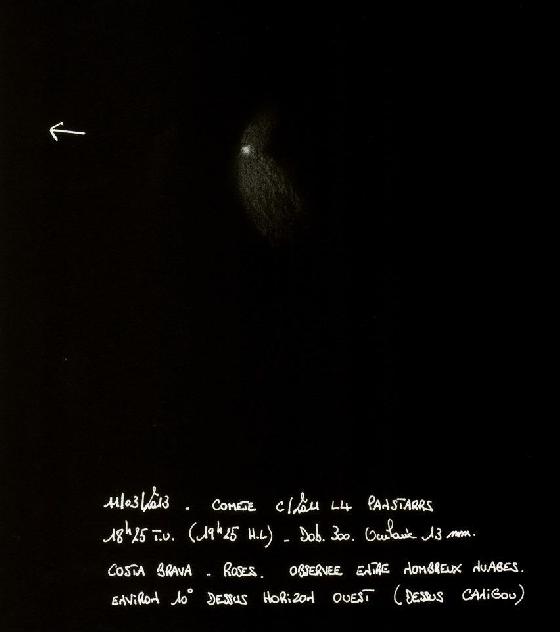 11/03/2013 . COMETE C/2011 L4 PANSTARRS
18h25 T.U. (19h25 H.L) - Dob. 300. Oculaire 13 mm.
COSTA BRAVA . ROSES. OBSERVEE ENTRE NOMBREUX NUAGES.
ENVIRON 10° DESSUS HORIZON OUEST (DESSUS CANIGOU)